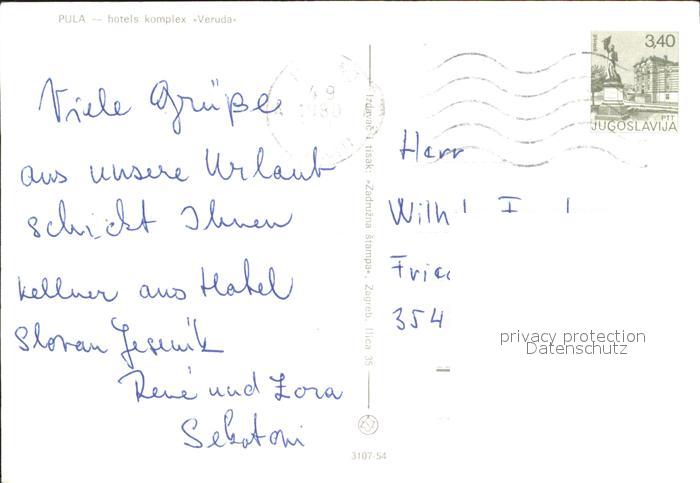 PULA — hotels komplex »Veruda«
Viele Grüße
aus unsere Urlaub
schickt Ihnen
Kellner aus Hotel
Slovan Jesenik
René und Zora
Izdavač i tisak: »Zadružna štampa«, Zagreb, Ilica 35
3107-54
3,40
PTT
JUGOSLAVIJA
Herr
Wilh
354
privacy protection
Datenschutz